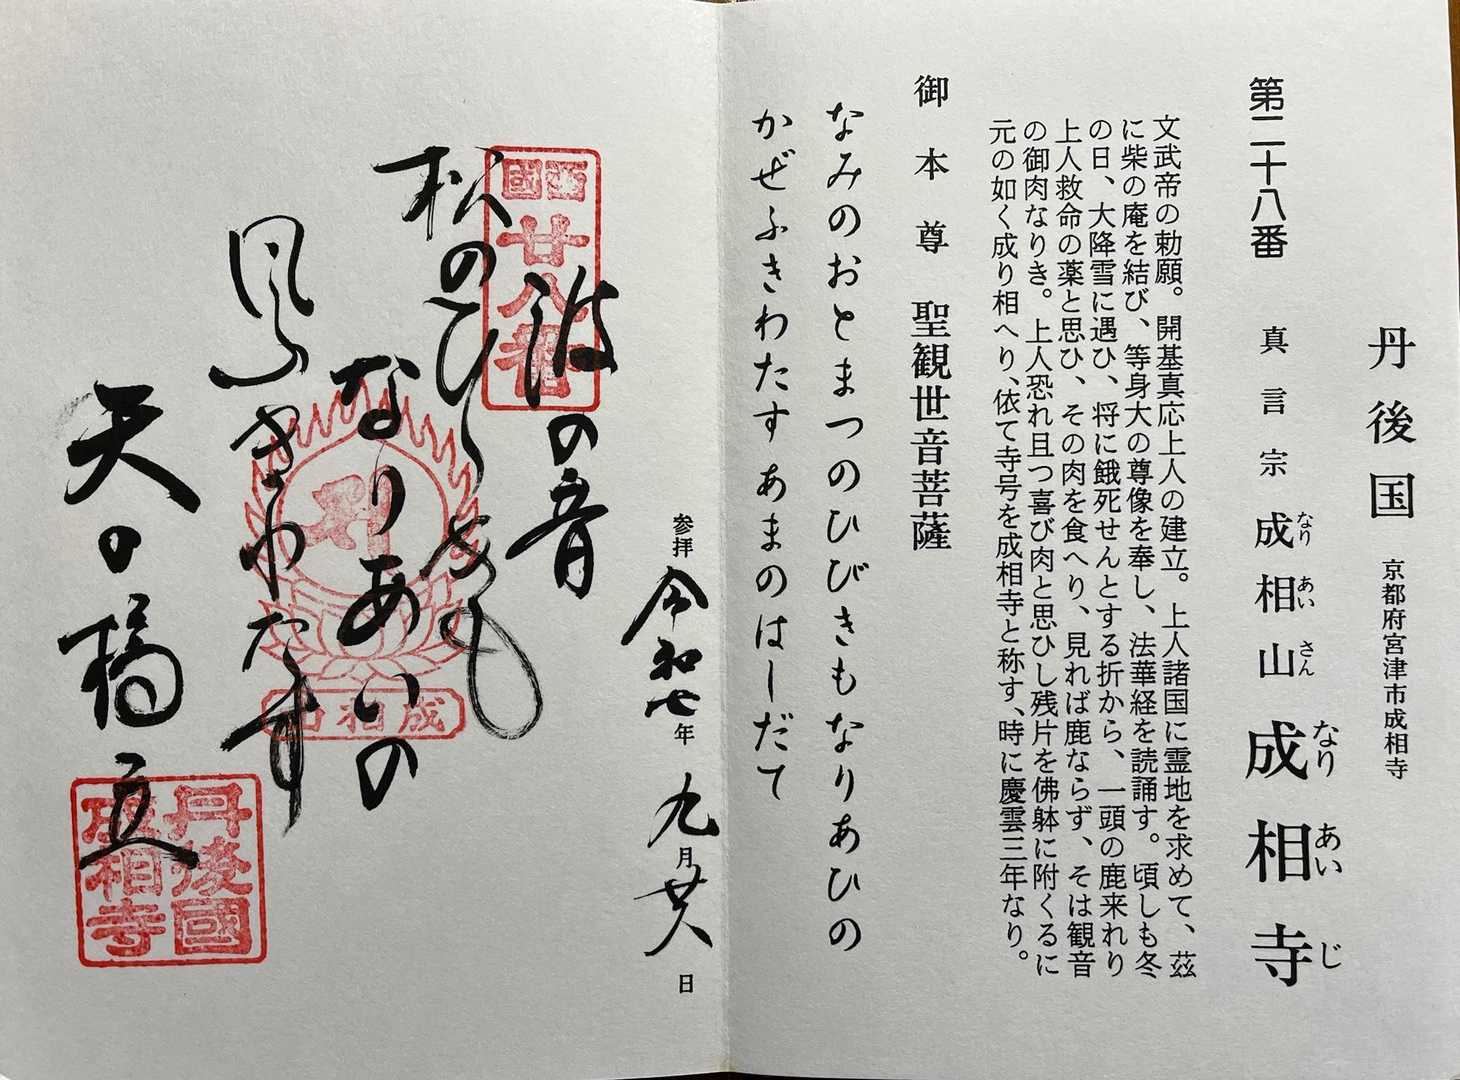 丹後国 京都府宮津市成相寺
第二十八番 真言宗 成相山 成相寺
なりあいさん なりあいじ
文武帝の勅願。開基真応上人の建立。上人諸国に霊地を求めて、茲
に柴の庵を結び、等身大の尊像を奉し、法華経を読誦す。頃しも冬
の日、大降雪に遇ひ、将に餓死せんとする折から、一頭の鹿来れり
上人救命の薬と思ひ、その肉を食へり、見れば鹿ならず、そは観音
の御肉なりき。上人恐れ且つ喜び肉と思ひし残片を佛躰に附くるに
元の如く成り相へり、依て寺号を成相寺と称す、時に慶雲三年なり。
御本尊 聖観世音菩薩
なみのおとまつのひびきもなりあひの
かぜふきわたすあまのはしだて
参拝 令和七年 九月廿八日
西國
廿八番
波の音
松のひゞきも
なりあいの
風ふきわたす
天の橋立
成相山
丹後國
成相寺